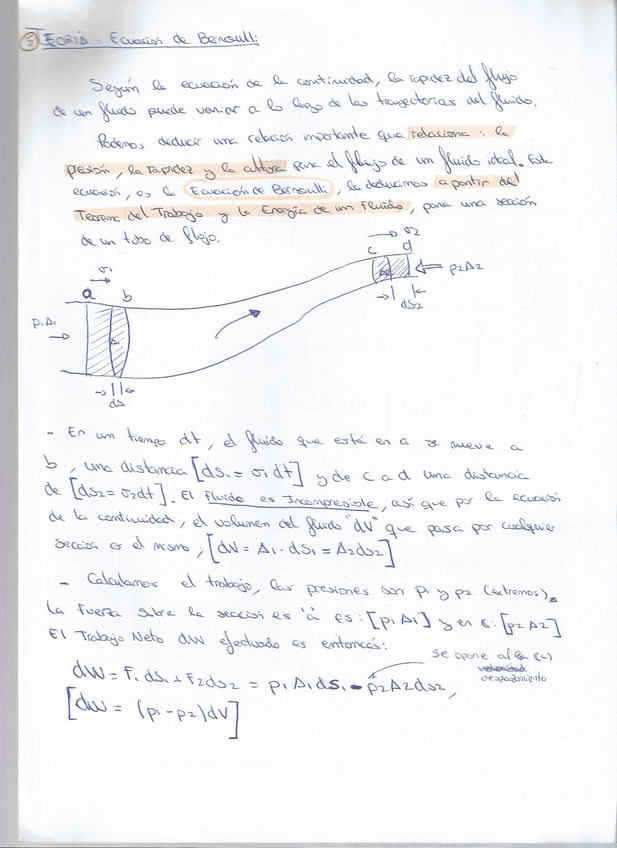 5) TEORÍA. Ecuación de Bernoulli:
Según la ecuación de la continuidad, la rapidez del flujo
de un fluido puede variar a lo largo de las trayectorias del fluido.
Podemos deducir una relación importante que relaciona: la
presión, la rapidez y la altura para el flujo de un fluido ideal. Esta
ecuación, es la Ecuación de Bernoulli, la deducimos a partir del
Teorema del Trabajo y la Energía de un Fluido, para una sección
de un tubo de flujo.
v2
c d
p2A2
ds2
v1
a b
p1A1
A1
ds1
- En un tiempo dt, el fluido que está en a se mueve a
b, una distancia [ds1 = v1 dt] y de c a d una distancia
de [ds2 = v2 dt]. El fluido es Incompresible, así que por la ecuación
de la continuidad, el volumen del fluido "dV" que pasa por cualquier
sección es el mismo, [dV = A1 · ds1 = A2 ds2]
- Calculamos el trabajo, las presiones son p1 y p2 (extremos).
La Fuerza sobre la sección es 'a' es: [p1 A1] y en c: [p2 A2]
El Trabajo Neto dW efectuado es entonces:
dW = F1 ds1 + F2 ds2 = p1 A1 ds1 - p2 A2 ds2,
se opone al
desplazamiento
[dW = (p1 - p2) dV]